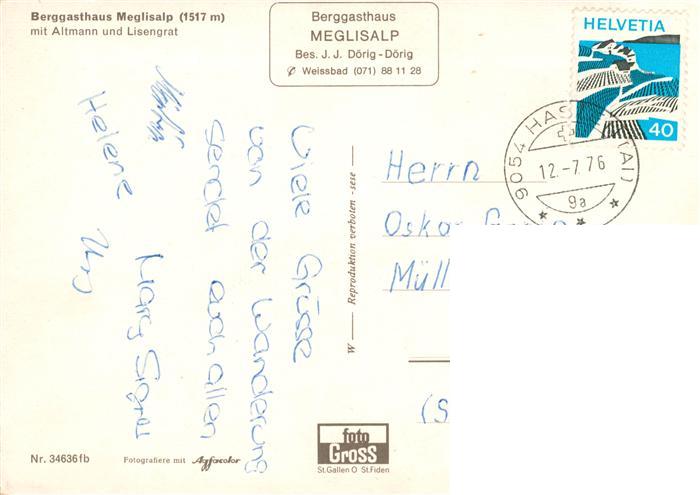 Berggasthaus Meglisalp (1517 m)
mit Altmann und Lisengrat
Berggasthaus
MEGLISALP
Bes. J. J. Dörig-Dörig
✆ Weissbad (071) 88 11 28
HELVETIA
40
9054 HAS (AI)
12.-7.76
9a
Viele Grüsse
von der Wanderung
sendet euch allen
Helene
W — Reproduktion verboten -sese-
Herrn
Oskar
Müll
(S
foto
GROSS
St.Gallen O St.Fiden
Nr. 34636fb
Fotografiere mit Agfacolor